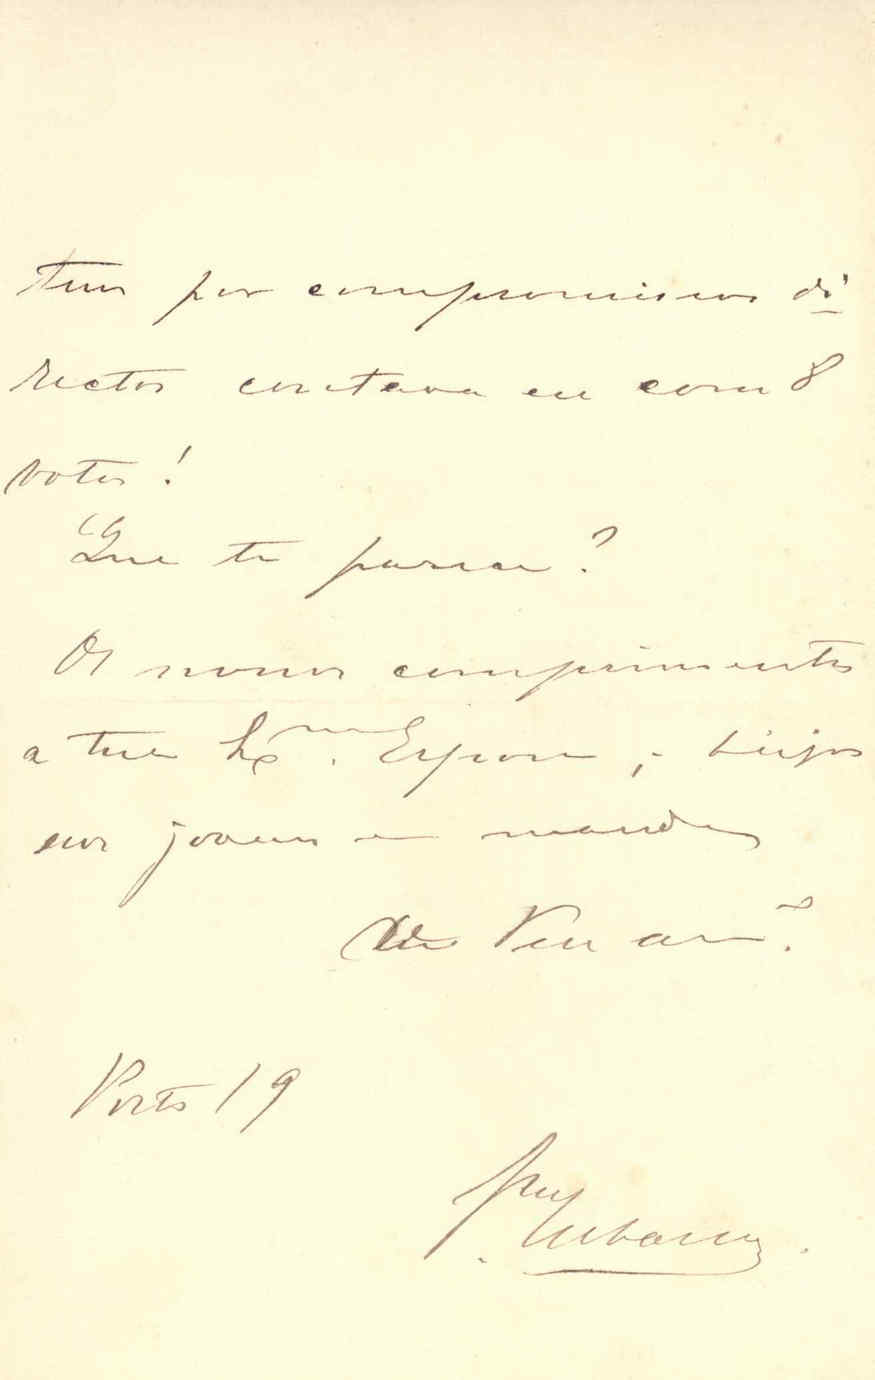 por compromissos di
rectos contava eu com 8
votos!
Que te parece?
Os nossos comprimentos
a tua Exma. Espoza, beijos
aos jovens e manda
Teu am.º
Porto 19
Urbano